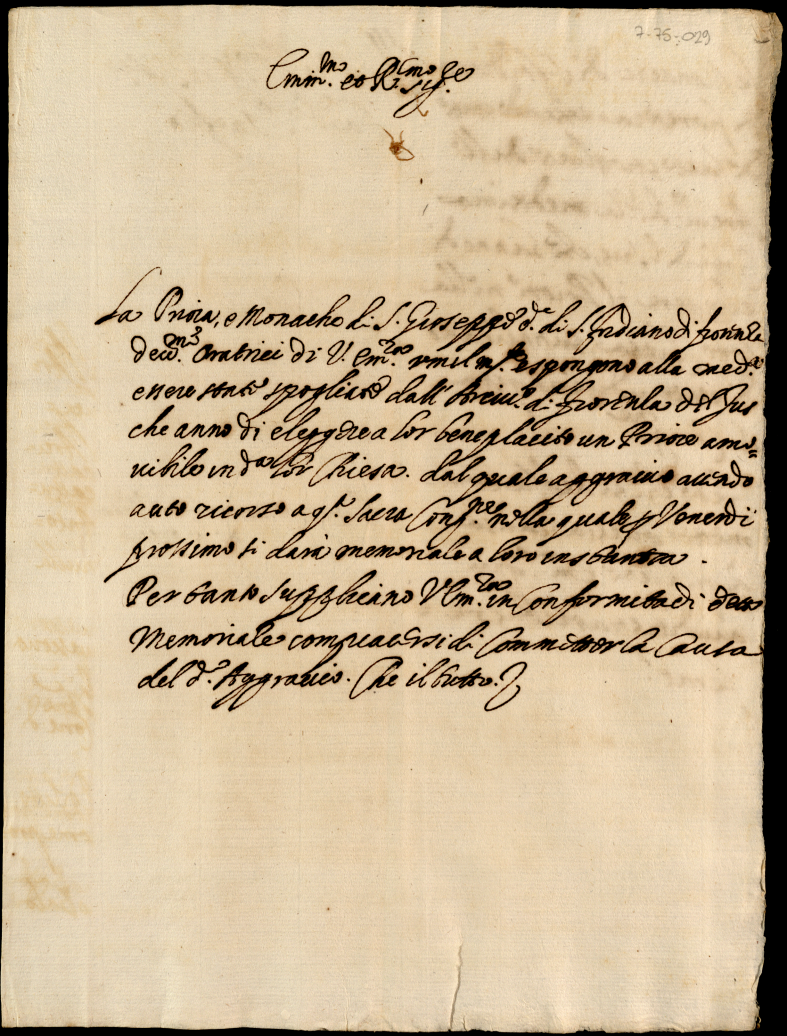 7-75-029
Emin.mo et R.mo Sig.re
La Priora, e Monache di S. Gioseppe d.e di S. Fridiano di fiorenza
dev.me Oratrici di V. Em.za umilm.te espongono alla med.a
essere state spogliate dall' Arciv.o di Fiorenza del Jus
che anno di eleggere a lor beneplacito un Priore amo=
vibile in d.a lor Chiesa. dal quale aggravio avendo
auto ricorso a q.sta Sacra Cong.ne nella quale p Venerdi
prossimo si darà memoriale a loro instanza.
Per tanto Supplicano V Em.za in Conformita di detto
Memoriale compiacersi di Committer la Causa
del d.o Aggravio. Che il tutto.